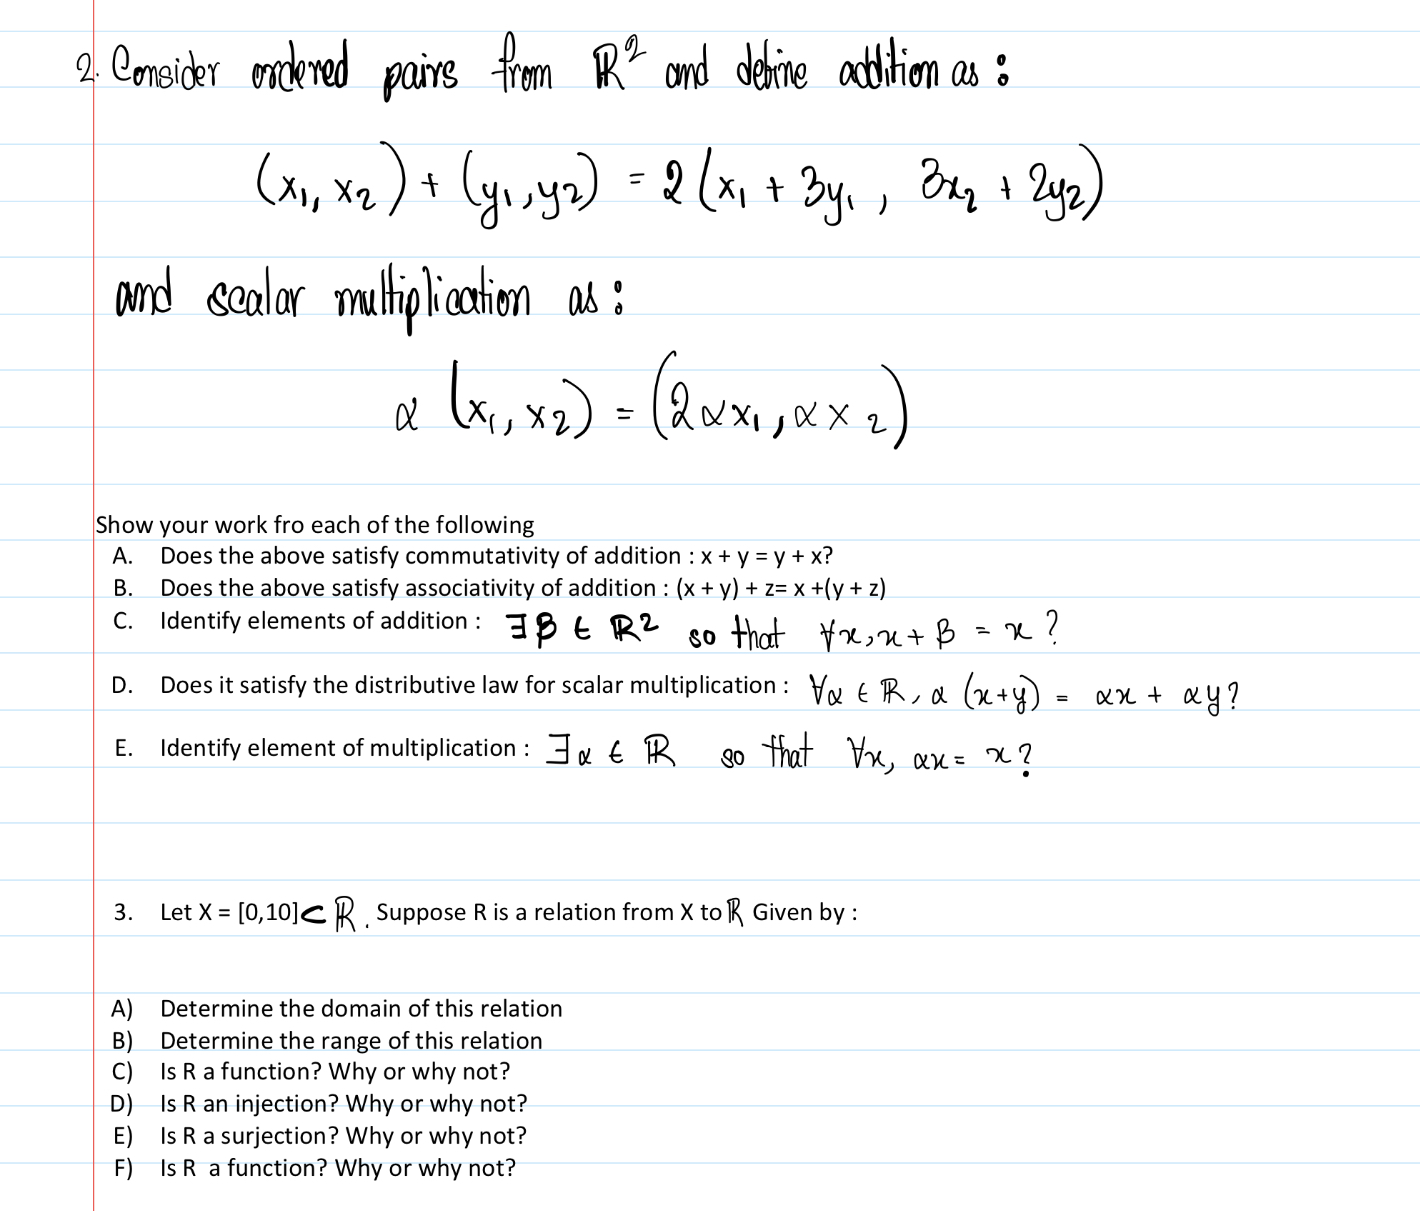 2. Consider ordered pairs from ℝ² and define addition as :
(x₁, x₂) + (y₁, y₂) = 2 (x₁ + 3y₁ , 3x₂ + 2y₂)
and scalar multiplication as :
α (x₁, x₂) = (2αx₁, αx₂)
Show your work fro each of the following
A. Does the above satisfy commutativity of addition : x + y = y + x?
B. Does the above satisfy associativity of addition : (x + y) + z= x +(y + z)
C. Identify elements of addition : ∃β ∈ ℝ² so that ∀x, x + β = x ?
D. Does it satisfy the distributive law for scalar multiplication : ∀α ∈ ℝ, α (x+y) = αx + αy?
E. Identify element of multiplication : ∃α ∈ ℝ so that ∀x, αx = x ?
3. Let X = [0,10]⊂ ℝ. Suppose R is a relation from X to ℝ Given by :
A) Determine the domain of this relation
B) Determine the range of this relation
C) Is R a function? Why or why not?
D) Is R an injection? Why or why not?
E) Is R a surjection? Why or why not?
F) Is R a function? Why or why not?